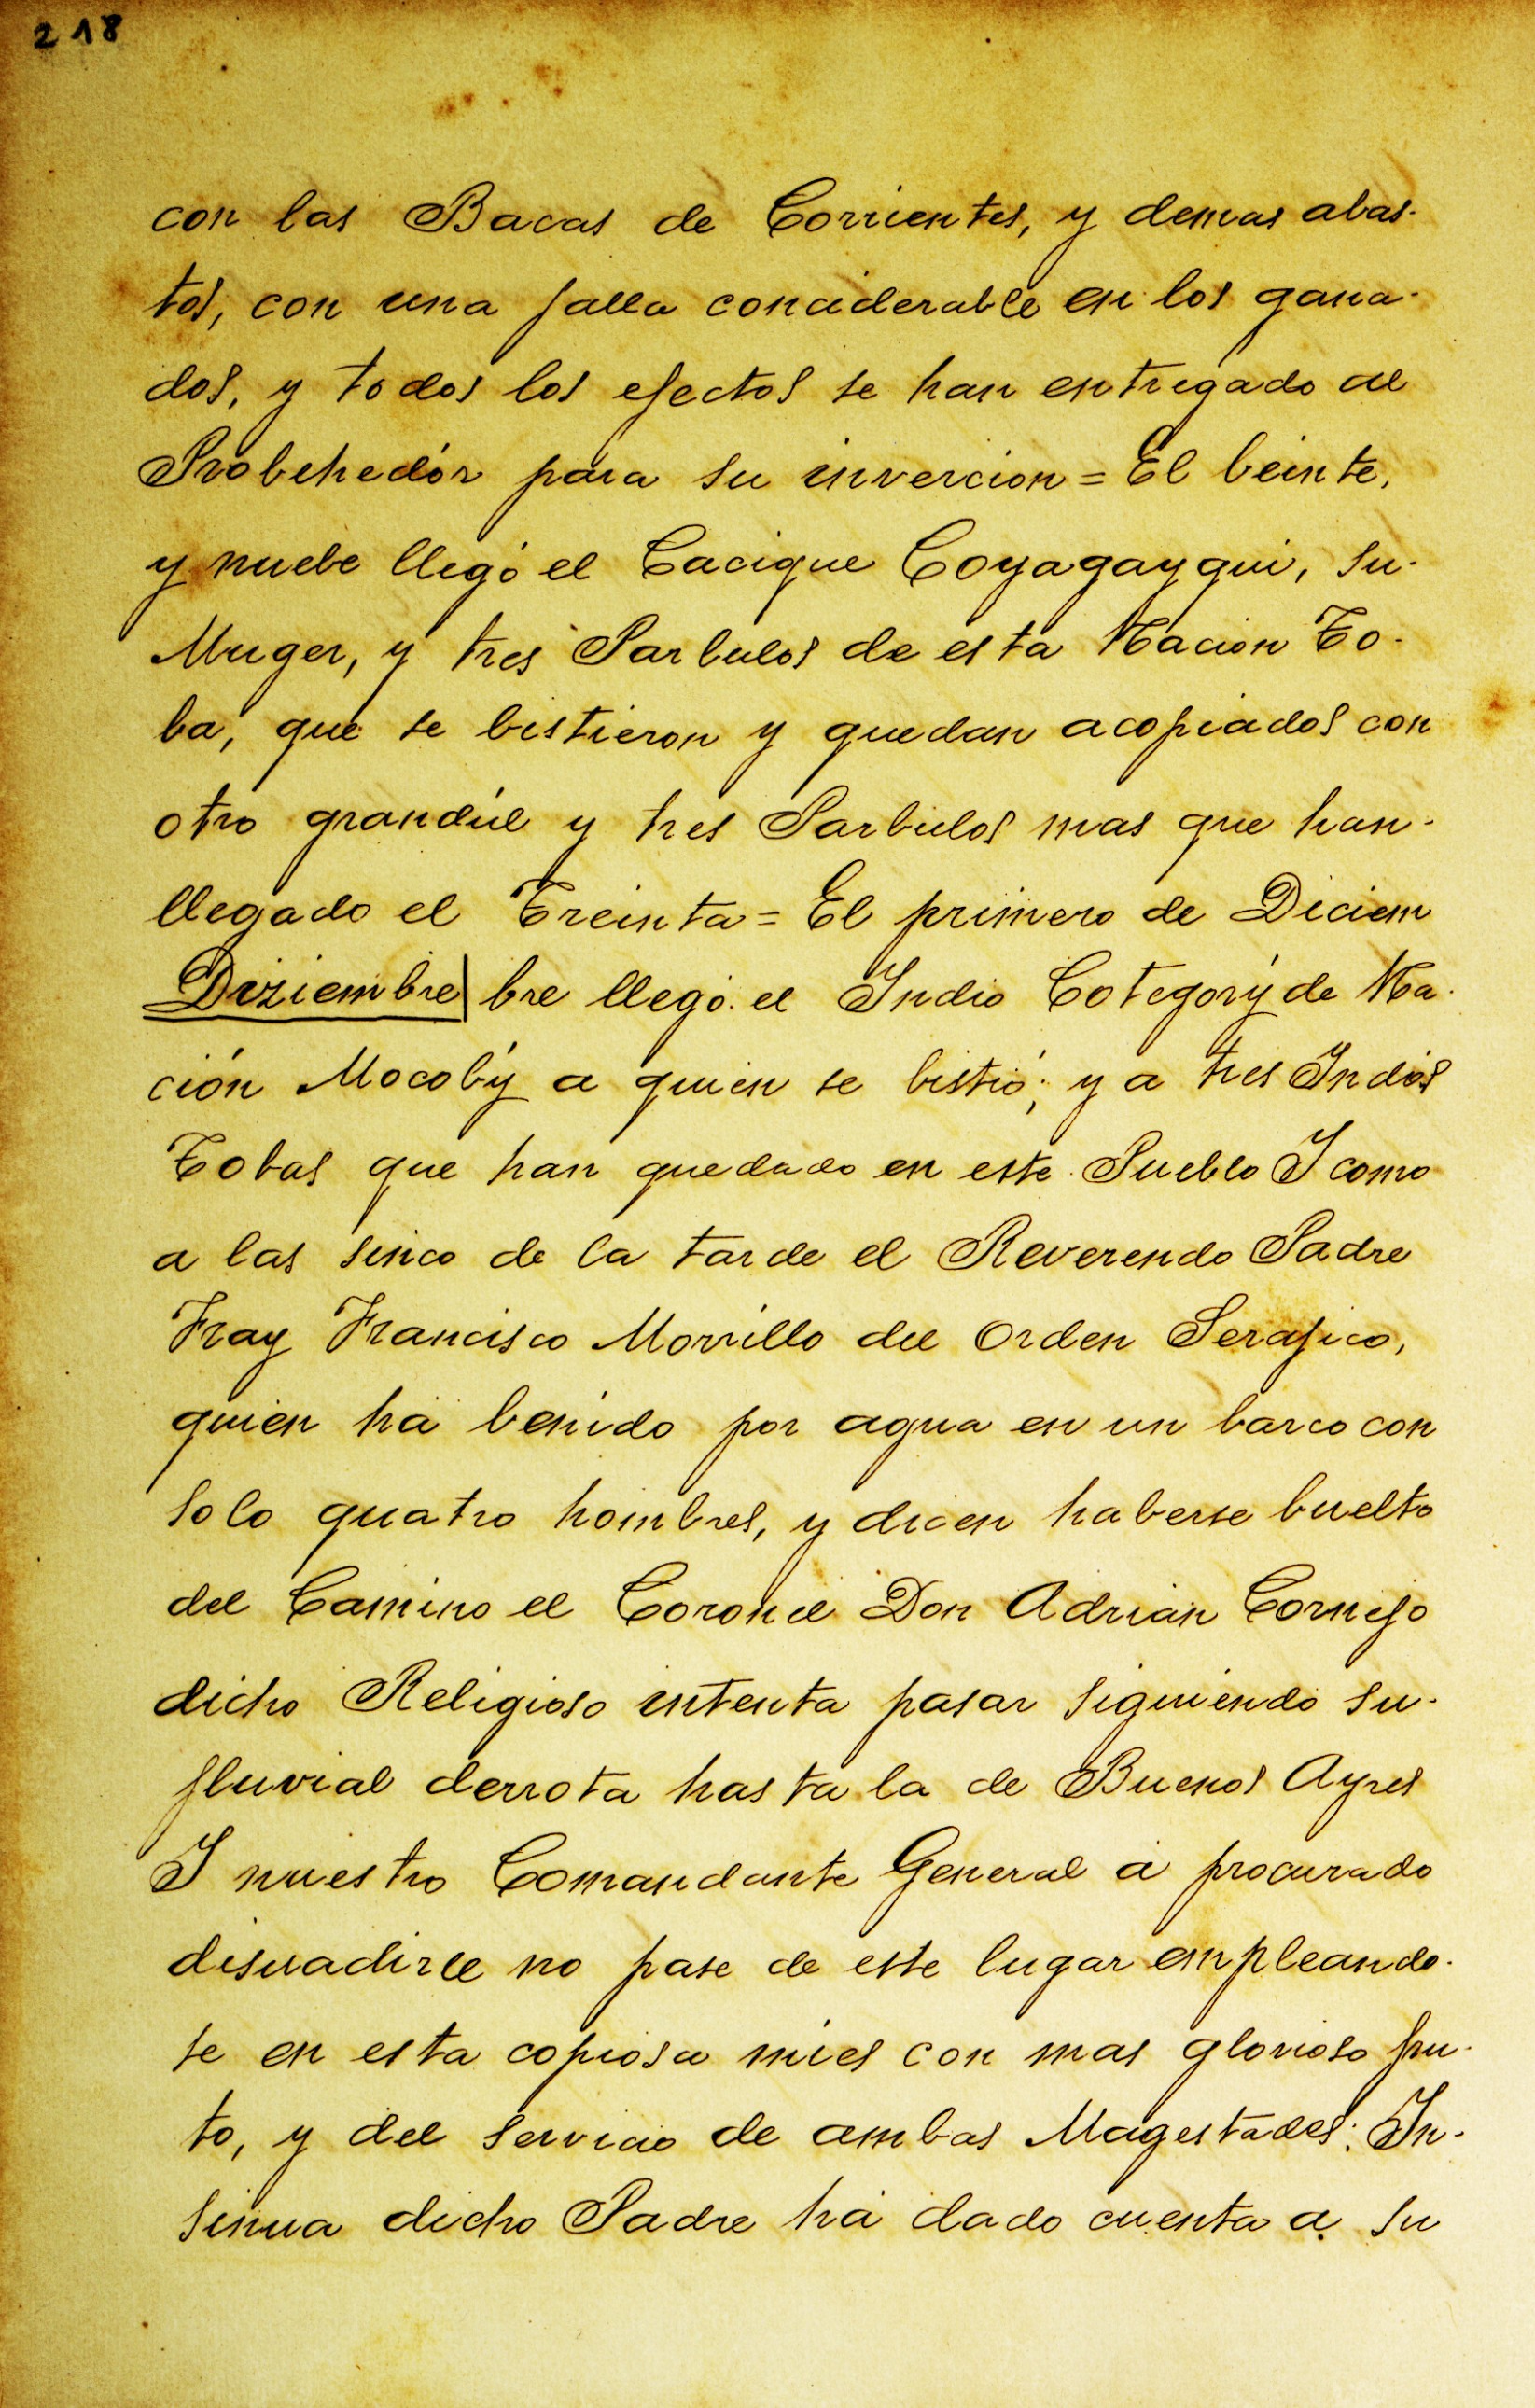 218
con las Bacas de Corrientes, y demas abas-
tos, con una falla conciderable en los gana-
dos, y todos los efectos se han entregado al
Probehedór para su invercion = El beinte,
y nuebe llegó el Cacique Coyagayqui, su-
Muger, y tres Parbulos de esta Nacion To-
ba, que se bistieron y quedan acopiados con
otro grandúl y tres Parbulos mas que han-
llegado el Treinta = El primero de Diciem
Diziembre| bre llegó el Indio Cotegorý de Na-
ción Mocobý a quien se bistió; y a tres Indios
Tobas que han quedado en este Pueblo I como
a las sinco de la tarde el Reverendo Padre
Fray Francisco Morrillo del Orden Serafico,
quien há benido por agua en un barco con
solo quatro hombres, y dicen haberse buelto
del Camino el Coronel Don Adrian Cornejo
dicho Religioso intenta pasar siguiendo su-
fluvial derrota hasta la de Buenos Ayres
I nuestro Comandante General á procurado
disuadirle no pase de este lugar empleando-
se en esta copiosa mies con mas glorioso fru-
to, y del servicio de ambas Magestades: In-
sinua dicho Padre há dado cuenta a su